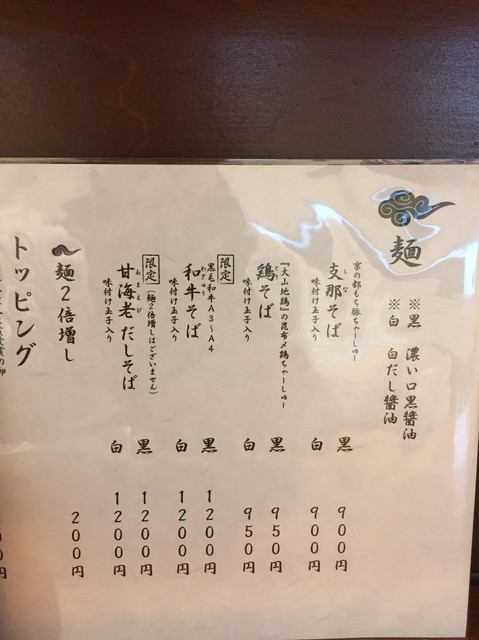 麺
※黒 濃い口黒醤油
※白 白だし醤油
京の都もち豚ちゃーしゅー
支那そば
しな
味付け玉子入り
黒 900円
白 900円
『大山地鶏』の昆布〆鶏ちゃーしゅー
鶏そば
とり
味付け玉子入り
黒 950円
白 950円
限定
黒毛和牛A3~A4
和牛そば
わぎゅう
味付け玉子入り
黒 1200円
白 1200円
限定
(麺2倍増しはございません)
甘海老だしそば
あまえび
味付け玉子入り
黒 1200円
白 1200円
麺2倍増し
200円
トッピング